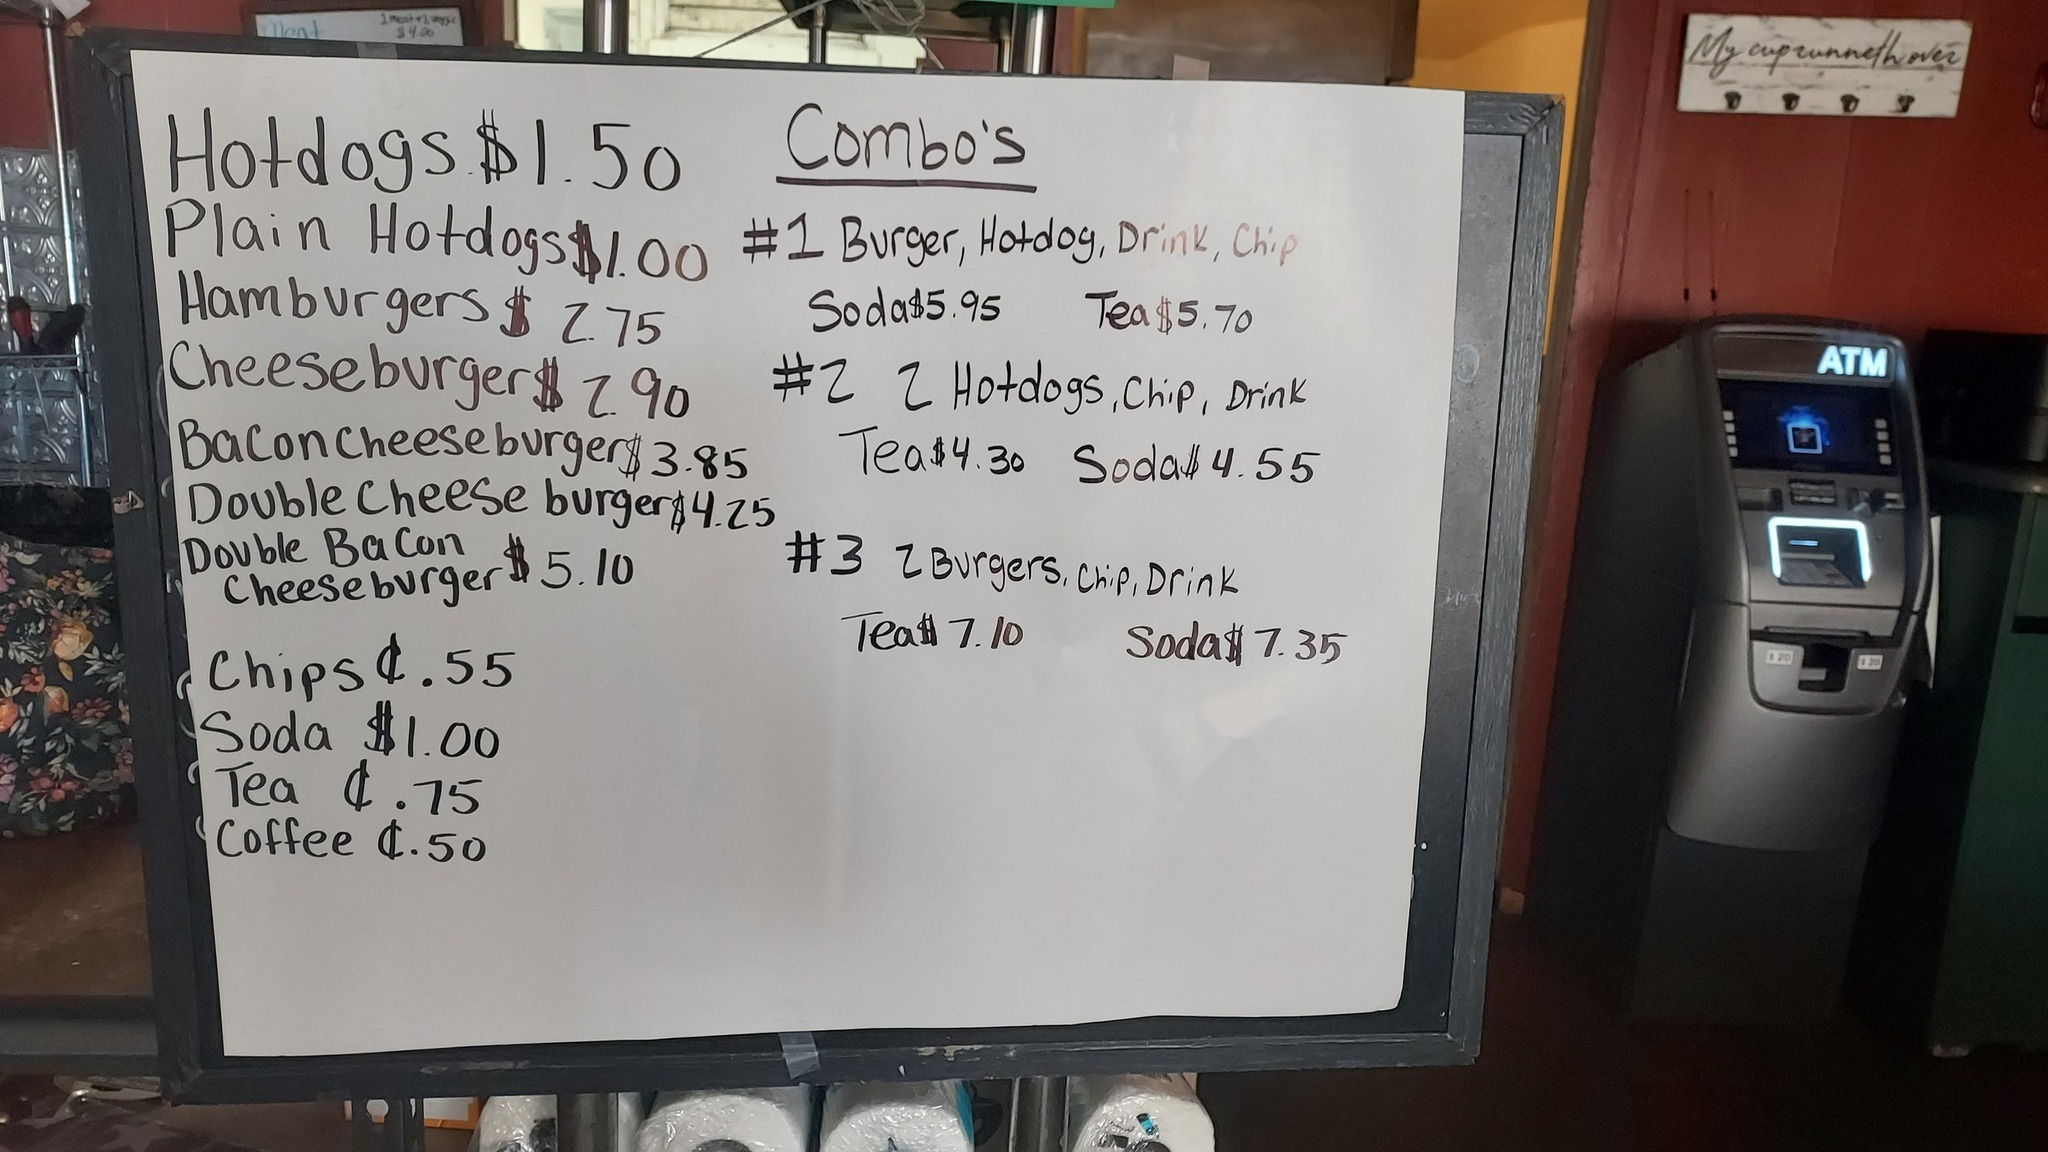 Meat
1 meat + 1 veggie
$4.00
Hotdogs $1.50
Plain Hotdogs $1.00
Hamburgers $2.75
Cheeseburger $2.90
Bacon cheeseburger $3.85
Double Cheese burger $4.25
Double Bacon
Cheeseburger $5.10
Chips ¢.55
Soda $1.00
Tea ¢.75
Coffee ¢.50
Combo's
#1 Burger, Hotdog, Drink, Chip
Soda $5.95 Tea $5.70
#2 2 Hotdogs, Chip, Drink
Tea $4.30 Soda $4.55
#3 2 Burgers, Chip, Drink
Tea $7.10 Soda $7.35
My cup runneth over
ATM
$20 $20